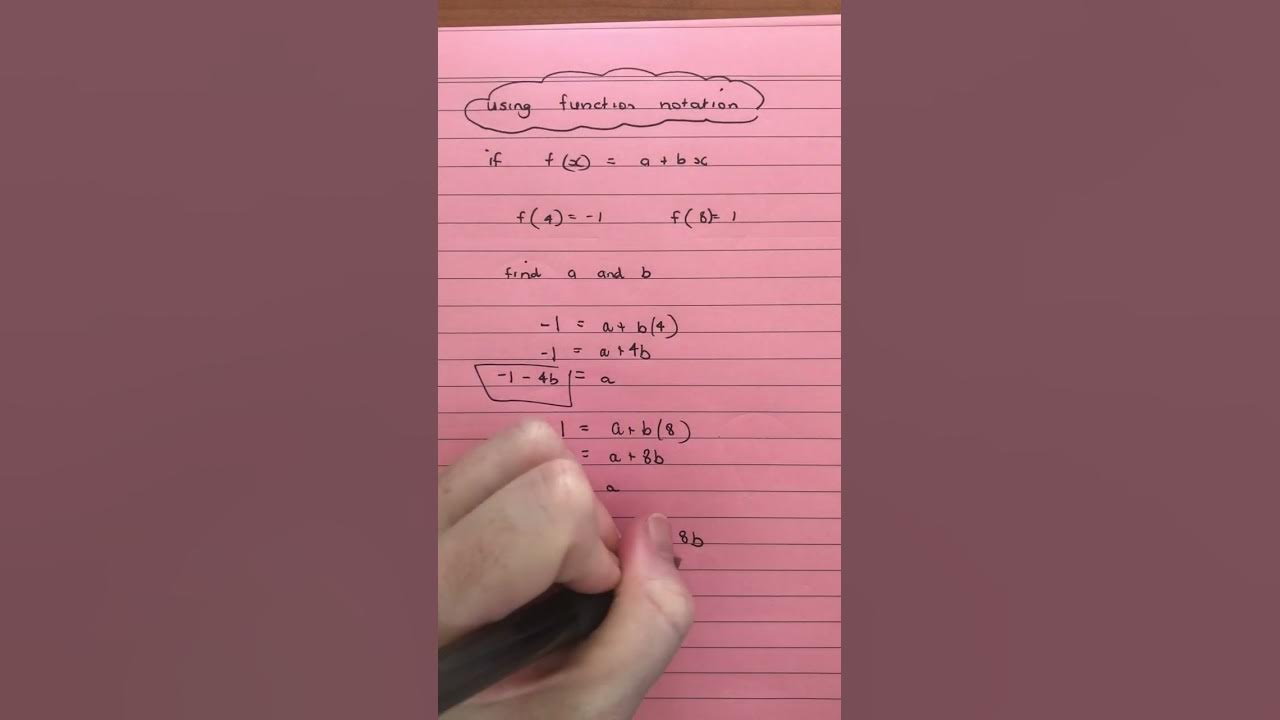 using function notation
if f(x) = a + bx
f(4) = -1 f(8) = 1
find a and b
-1 = a + b(4)
-1 = a + 4b
-1 - 4b = a
1 = a + b(8)
= a + 8b
a
8b